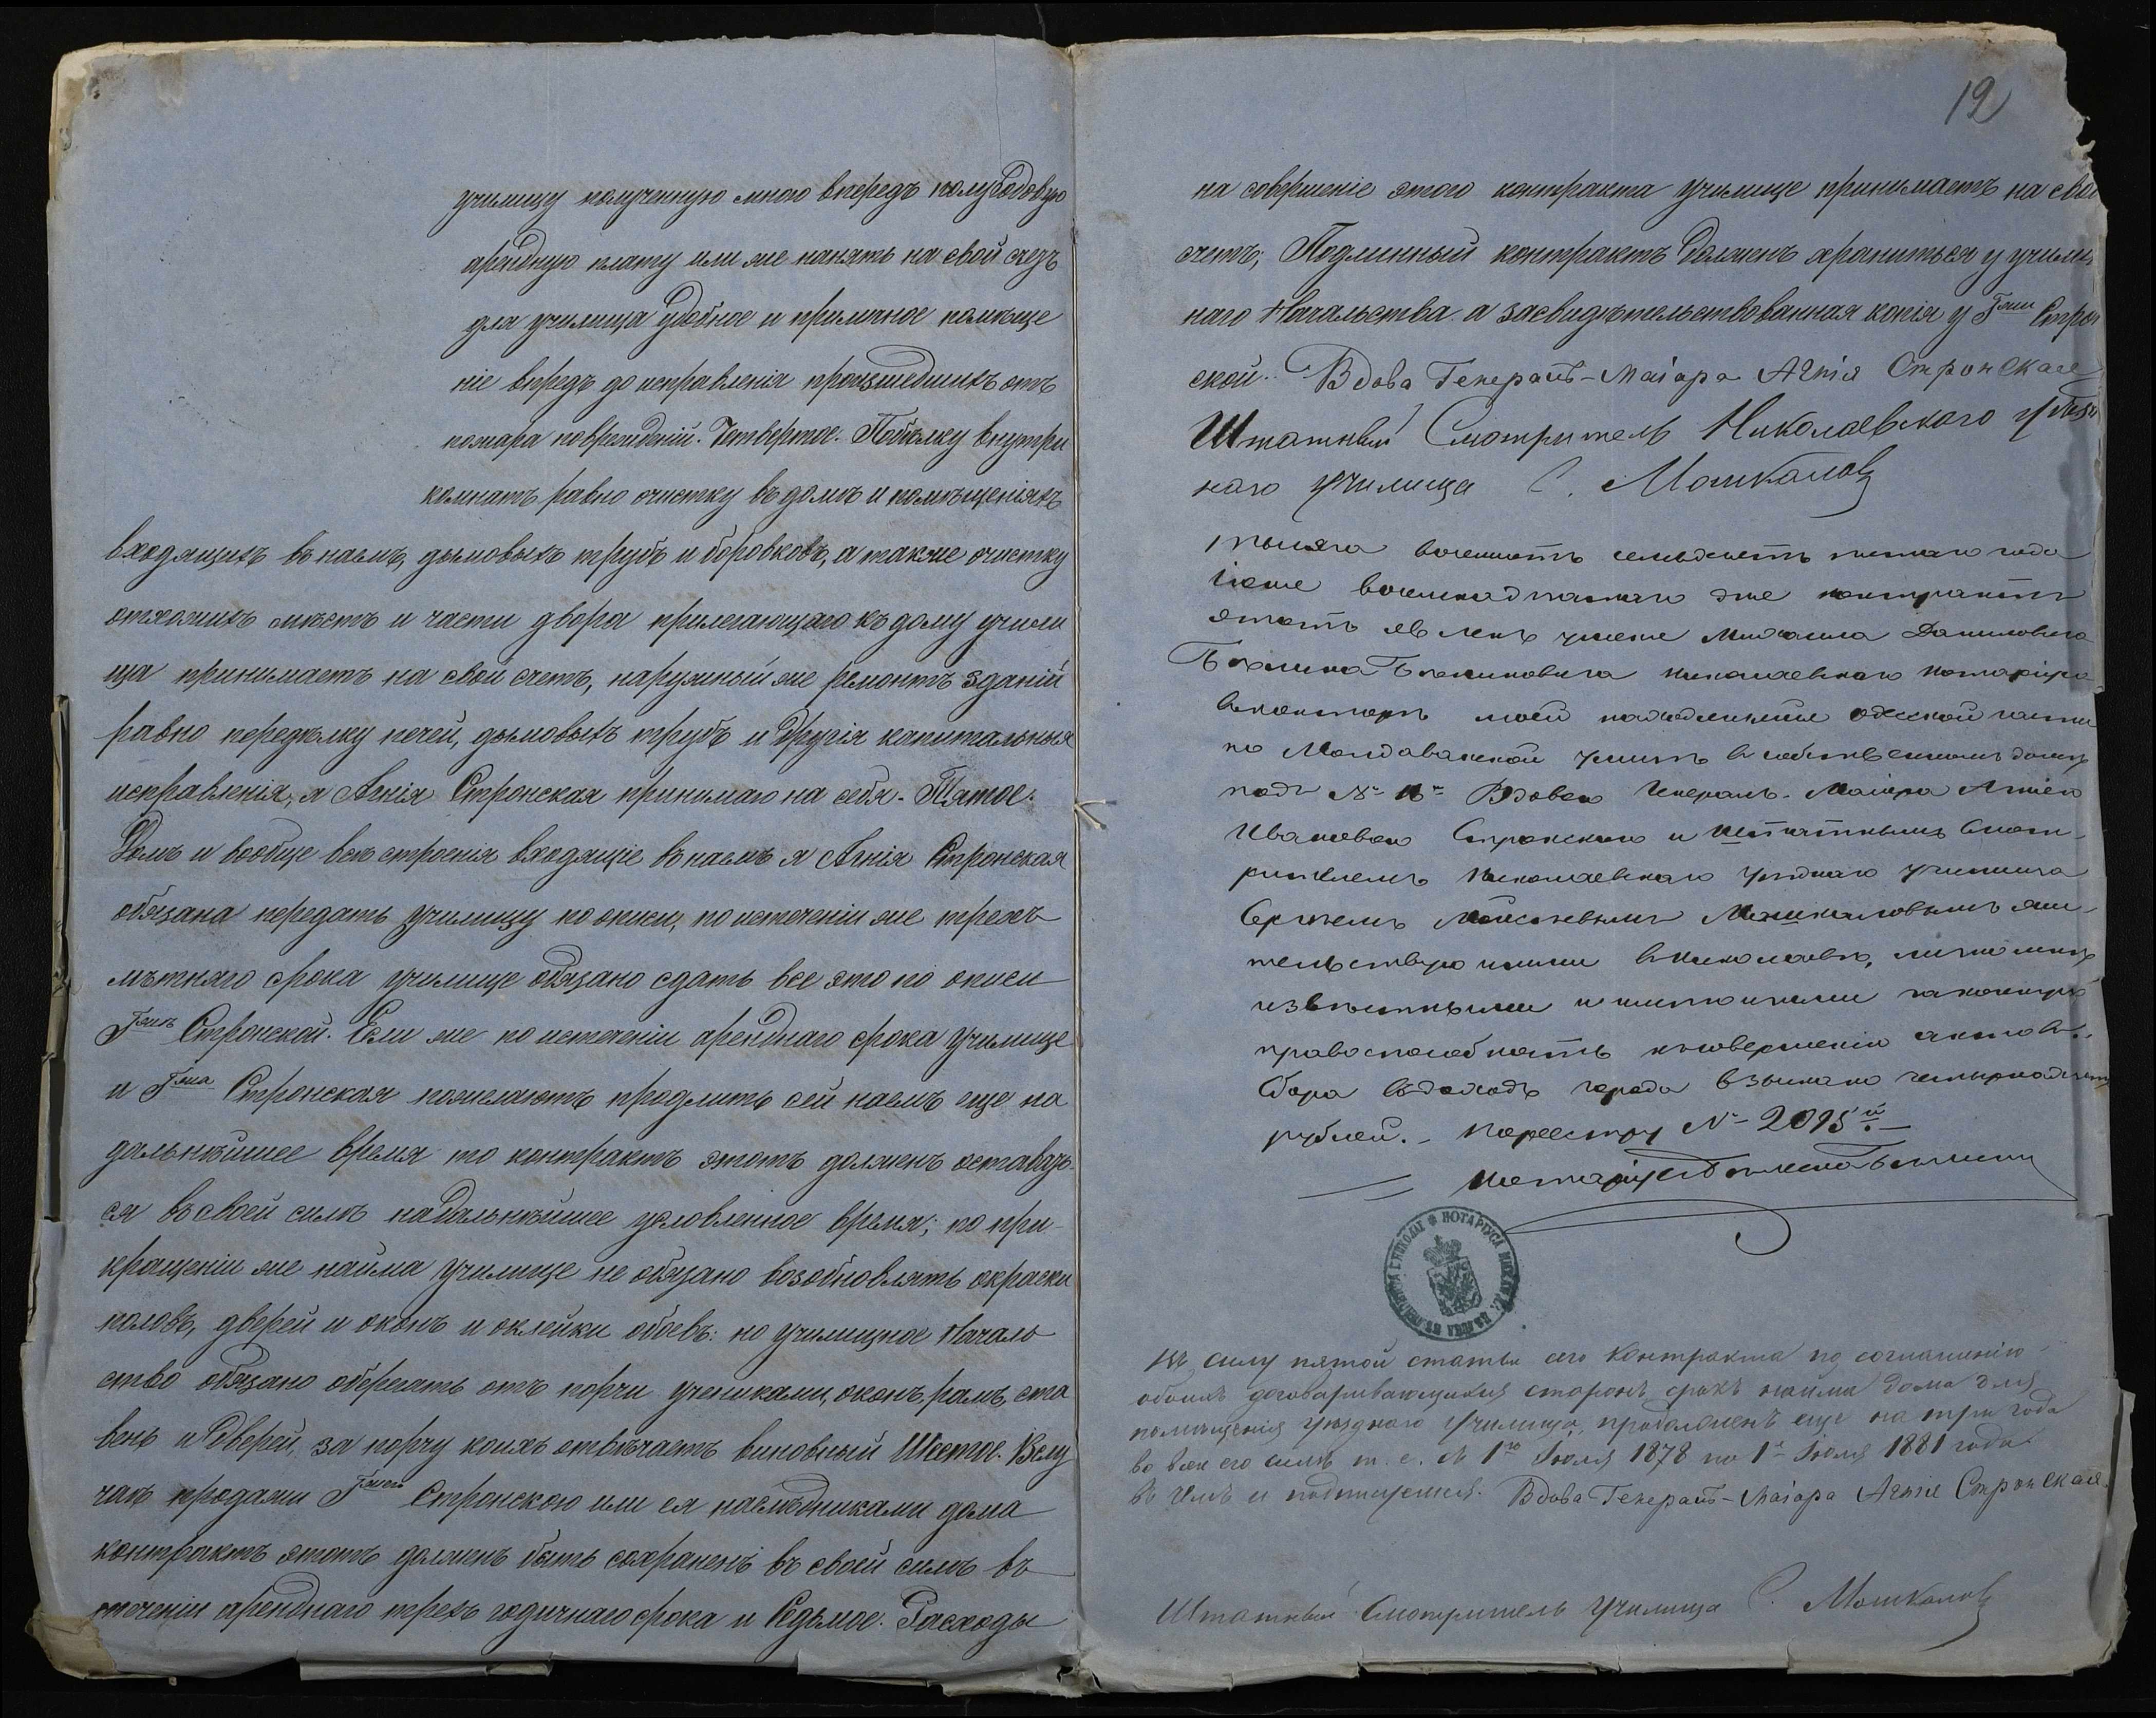 училищу полученную мною впередъ полугодовую
арендную плату или же нанять на свой счетъ
для училища удобное и приличное помѣще
ніе впредь до исправленія происшедшихъ отъ
пожара поврежденій. Четвертое. Побѣлку внутри
комнатъ равно очистку въ домѣ и помѣщеніяхъ
входящихъ въ наемъ, дымовыхъ трубъ и боровковъ, а также очистку
отхожихъ мѣстъ и части двора прилегающаго къ дому учили
ща принимаетъ на свой счетъ, наружный же ремонтъ зданій
равно передѣлку печей, дымовыхъ трубъ и другія капитальныя
исправленія, я Агнія Стронская принимаю на себя. Пятое.
Домъ и вообще всѣ строенія входящіе въ наемъ я Агнія Стронская
обязана передать училищу по описи, по истеченіи же трехъ
лѣтняго срока училище обязано сдать все это по описи
Г-жѣ Стронской. Если же по истеченіи аренднаго срока училище
и Г-жа Стронская пожелаютъ продлить сей наемъ еще на
дальнѣйшее время то контрактъ этотъ долженъ оставать-
ся въ своей силѣ на дальнѣйшее условленное время; по пре-
кращеніи же найма училище не обязано возобновлять окраски
половъ, дверей и оконъ и оклейки обоевъ: но училищное Началь
ство обязано оберегать отъ порчи учениками, оконъ, рамъ, ста
вень и дверей, за порчу коихъ отвѣчаетъ виновный Шестое. Въ слу
чаѣ продажи Г-жею Стронскою или ея наслѣдниками дома
контрактъ этотъ долженъ быть сохраненъ въ своей силѣ въ
теченіи аренднаго трехъ годичнаго срока и Седьмое. Расходы
12
на совершеніе этого контракта училище принимаетъ на свой
счетъ; Подлинный контрактъ долженъ храниться у училищ
наго Начальства а засвидѣтельствованная копія у Г-жи Строн
ской. Вдова Генералъ-Маіора Агнія Стронская
Штатный Смотритель Николаевскаго уѣзд
наго училища С. Машкаловъ
тысяча восемьсотъ семьдесятъ пятаго года
Іюня восемнадцатаго дня контрактъ
этотъ явленъ у меня Михаила Даниловича
Николаевскаго Нотаріуса
въ конторѣ моей находящейся Одесской части
по Молдаванской улицѣ въ собственномъ домѣ
подъ № Вдовою Генералъ-Маіора Агніею
Ивановою Стронскою и Штатнымъ Смот-
рителемъ Николаевскаго уѣзднаго училища
Сергѣемъ Моисеевымъ Машкаловымъ жи-
тельствующими въ Николаевѣ, лично мнѣ
извѣстными и имѣющими законную
правоспособность къ совершенію актовъ.
Сбора въ доходъ города взыскано четырнадцать
рублей. По реестру № 2095й.
Нотаріусъ
НОТАРІУСА
Въ силу пятой статьи сего контракта по соглашенію
обоихъ договаривающихся сторонъ срокъ найма дома для
помѣщенія уѣзднаго училища, продолженъ еще на три года
во всей его силѣ т. е. съ 1го Іюля 1878 по 1е Іюля 1881 года
въ чемъ и подписуемся. Вдова Генералъ-Маіора Агнія Стронская.
Штатный Смотритель училища С. Машкаловъ